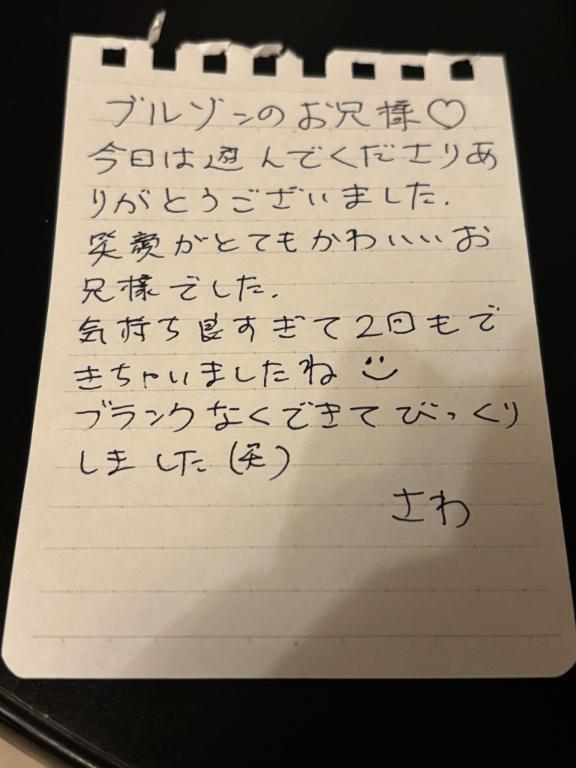 ブルゾンのお兄様♡
今日は遊んでくださりあ
りがとうございました.
笑顔がとてもかわいいお
兄様でした.
気持ち良すぎて2回もで
きちゃいましたね
ブランクなくできてびっくり
しました(笑)
さわ